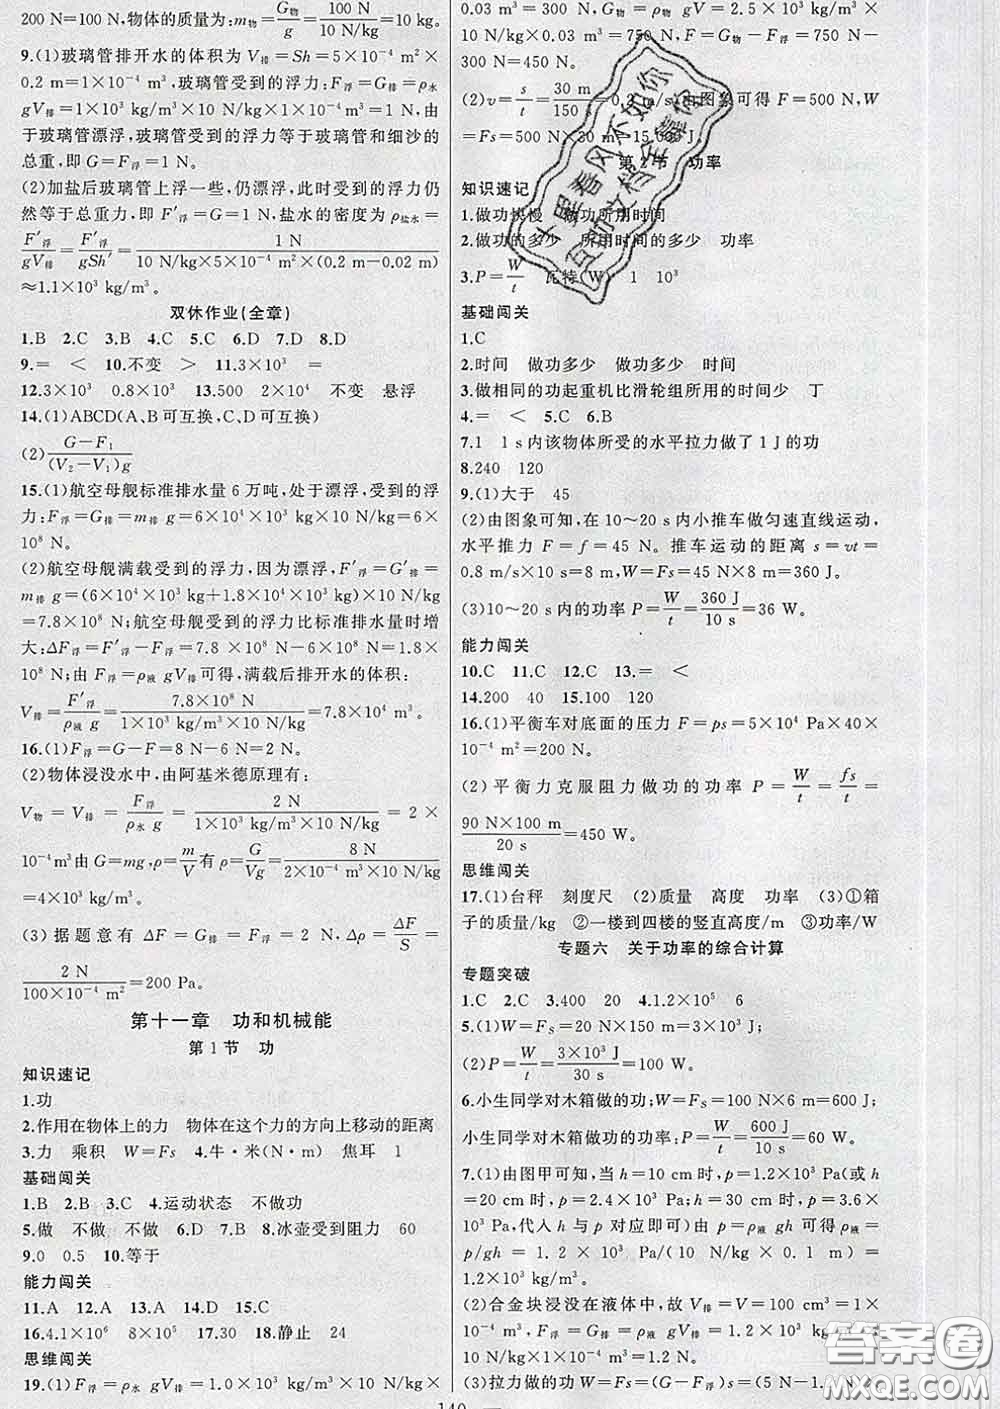 200 N=100 N,物体的质量为:m物=G物/g=100 N/10 N/kg=10 kg。
9.(1)玻璃管排开水的体积为 V排=Sh=5×10⁻⁴ m²×
0.2 m=1×10⁻⁴ m³,玻璃管受到的浮力:F浮=G排=ρ水
gV排=1×10³ kg/m³×10 N/kg×1×10⁻⁴ m³=1 N,由
于玻璃管漂浮,玻璃管受到的浮力等于玻璃管和细沙的
总重,即 G=F浮=1 N。
(2)加盐后玻璃管上浮一些,仍漂浮,此时受到的浮力仍
然等于总重力,即 F′浮=G=1 N,盐水的密度为 ρ盐水=
F′浮/gV′排=F′浮/gSh′=1 N/10 N/kg×5×10⁻⁴ m²×(0.2 m-0.02 m)
≈1.1×10³ kg/m³。
双休作业(全章)
1.B 2.C 3.B 4.C 5.C 6.D 7.D 8.D
9.= < 10.不变 > 11.3×10³ =
12.3×10³ 0.8×10³ 13.500 2×10⁴ 不变 悬浮
14.(1)ABCD(A、B可互换,C、D可互换)
(2)G-F₁/(V₂-V₁)g
15.(1)航空母舰标准排水量 6 万吨,处于漂浮,受到的浮
力:F浮=G排=m排 g=6×10⁴×10³ kg×10 N/kg=6×
10⁸ N。
(2)航空母舰满载受到的浮力,因为漂浮,F′浮=G′排=
m排 g=(6×10⁴×10³ kg+1.8×10⁴×10³ kg)×10 N/kg
=7.8×10⁸ N。航空母舰受到的浮力比标准排水量时增
大:ΔF浮=F′浮-F浮=7.8 ×10⁸ N-6×10⁸ N=1.8×
10⁸ N;由 F浮=ρ液 gV排可得,满载后排开水的体积:
V排=F′浮/ρ液 g=7.8×10⁸ N/1×10³ kg/m³×10 N/kg=7.8×10⁴ m³。
16.(1)F浮=G-F=8 N-6 N=2 N。
(2)物体浸没水中,由阿基米德原理有:
V物=V排=F浮/ρ水 g=2 N/1×10³ kg/m³×10 N/kg=2×
10⁻⁴m³由 G=mg,ρ=m/V有 ρ=G/Vg=8 N/2×10⁻⁴ m³×10 N/kg
=4×10³ kg/m³。
(3)据题意有 ΔF=G排=F浮=2 N,Δρ=ΔF/S=
2 N/100×10⁻⁴ m²=200 Pa。
第十一章 功和机械能
第1节 功
知识速记
1.功
2.作用在物体上的力 物体在这个力的方向上移动的距离
3.力 乘积 W=Fs 4.牛·米(N·m) 焦耳 1
基础闯关
1.B 2.B 3.C 4.运动状态 不做功
5.做 不做 不做 6.B 7.B 8.冰壶受到阻力 60
9.0 0.5 10.等于
能力闯关
11.A 12.A 13.A 14.D 15.C
16.4.1×10⁶ 8×10⁵ 17.30 18.静止 24
思维闯关
19.(1)F浮=ρ水 gV排=1.0×10³ kg/m³×10 N/kg×
0.03 m³=300 N,G物=ρ物 gV=2.5×10³ kg/m³×
10 N/kg×0.03 m³=750 N,F=G物-F浮=750 N-
300 N=450 N。
(2)v=s/t=30 m/150=0.2 m/s,由图象可得 F=500 N,W
=Fs=500 N×30 m=15 000 J
第2节 功率
知识速记
1.做功快慢 做功所用时间
2.做功的多少 所用时间的多少 功率
3.P=W/t 瓦特(W) 1 10³
基础闯关
1.C
2.时间 做功多少 做功多少 时间
3.做相同的功起重机比滑轮组所用的时间少 丁
4.= < 5.C 6.B
7.1 1 s内该物体所受的水平拉力做了 1 J 的功
8.240 120
9.(1)大于 45
(2)由图象可知,在 10~20 s 内小推车做匀速直线运动,
水平推力 F=f=45 N。推车运动的距离 s=vt=
0.8 m/s×10 s=8 m,W=Fs=45 N×8 m=360 J。
(3)10~20 s 内的功率 P=W/t=360 J/10 s=36 W。
能力闯关
10.C 11.C 12.C 13.= <
14.200 40 15.100 120
16.(1)平衡车对底面的压力 F=ps=5×10⁴ Pa×40×
10⁻⁴ m²=200 N。
(2)平衡力克服阻力做功的功率 P=W/t=fs/t=
90 N×100 m/20 s=450 W。
思维闯关
17.(1)台秤 刻度尺 (2)质量 高度 功率 (3)①箱
子的质量/kg ②一楼到四楼的竖直高度/m ③功率/W
专题六 关于功率的综合计算
专题突破
1.C 2.C 3.400 20 4.1.2×10⁵ 6
5.(1)W=Fs=20 N×150 m=3×10³ J;
(2)P=W/t=3×10³ J/30 s=100 W。
6.小生同学对木箱做的功;W=Fs=100 N×6 m=600 J;
小生同学对木箱做功的功率:P=W/t=600 J/10 s=60 W。
7.(1)由图甲可知,当 h=10 cm 时,p=1.2×10³ Pa(或 h
=20 cm 时,p=2.4×10³ Pa;h=30 cm 时,p=3.6×
10³ Pa,代入 h 与 p 对应即可)由 p=ρ液 gh 可得 ρ液=
p/gh=1.2×10³ Pa/(10 N/kg×0.1 m)=
1.2×10³ kg/m³。
(2)合金块浸没在液体中,故 V排=V=100 cm³=1×
10⁻⁴ m³,F浮=G排=ρ液 gV排=1.2×10³ kg/m³×
10 N/kg×10⁻⁴ m³=1.2 N。
(3)拉力做的功 W=Fs=(G-F浮)s=(5 N-1.2
140
十里春风不如你
互助文档全靠你
答案圈
MXQE.COM